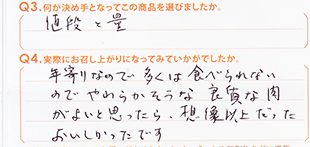 Q3.何が決め手となってこの商品を選びましたか。
値段と量
Q4.実際にお召し上がりになってみていかがでしたか。
年寄りなので多くは食べられない
のでやわらかそうな良質な肉
がよいと思ったら、想像以上だった
おいしかったです